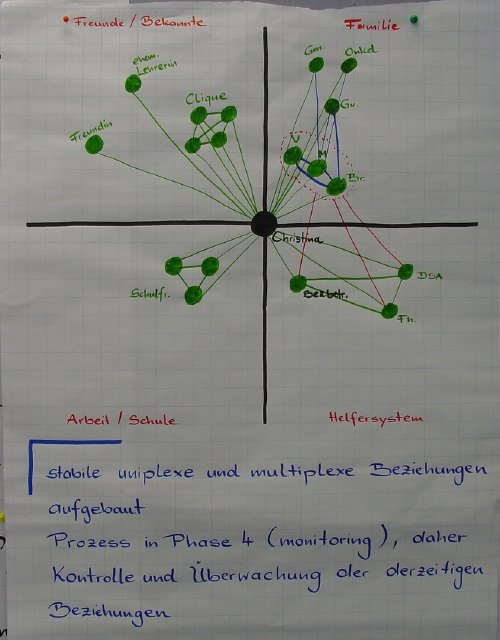 Freunde / Bekannte
Familie
ehem.
Lehrerin
Gm.
Onkel
Clique
Gv.
Freundin
V
M
Br.
Christina
Schulfr.
Bezbetr.
DSA
Fh.
Arbeit / Schule
Helfersystem
stabile uniplexe und multiplexe Beziehungen
aufgebaut
Prozess in Phase 4 (monitoring), daher
Kontrolle und Überwachung der derzeitigen
Beziehungen